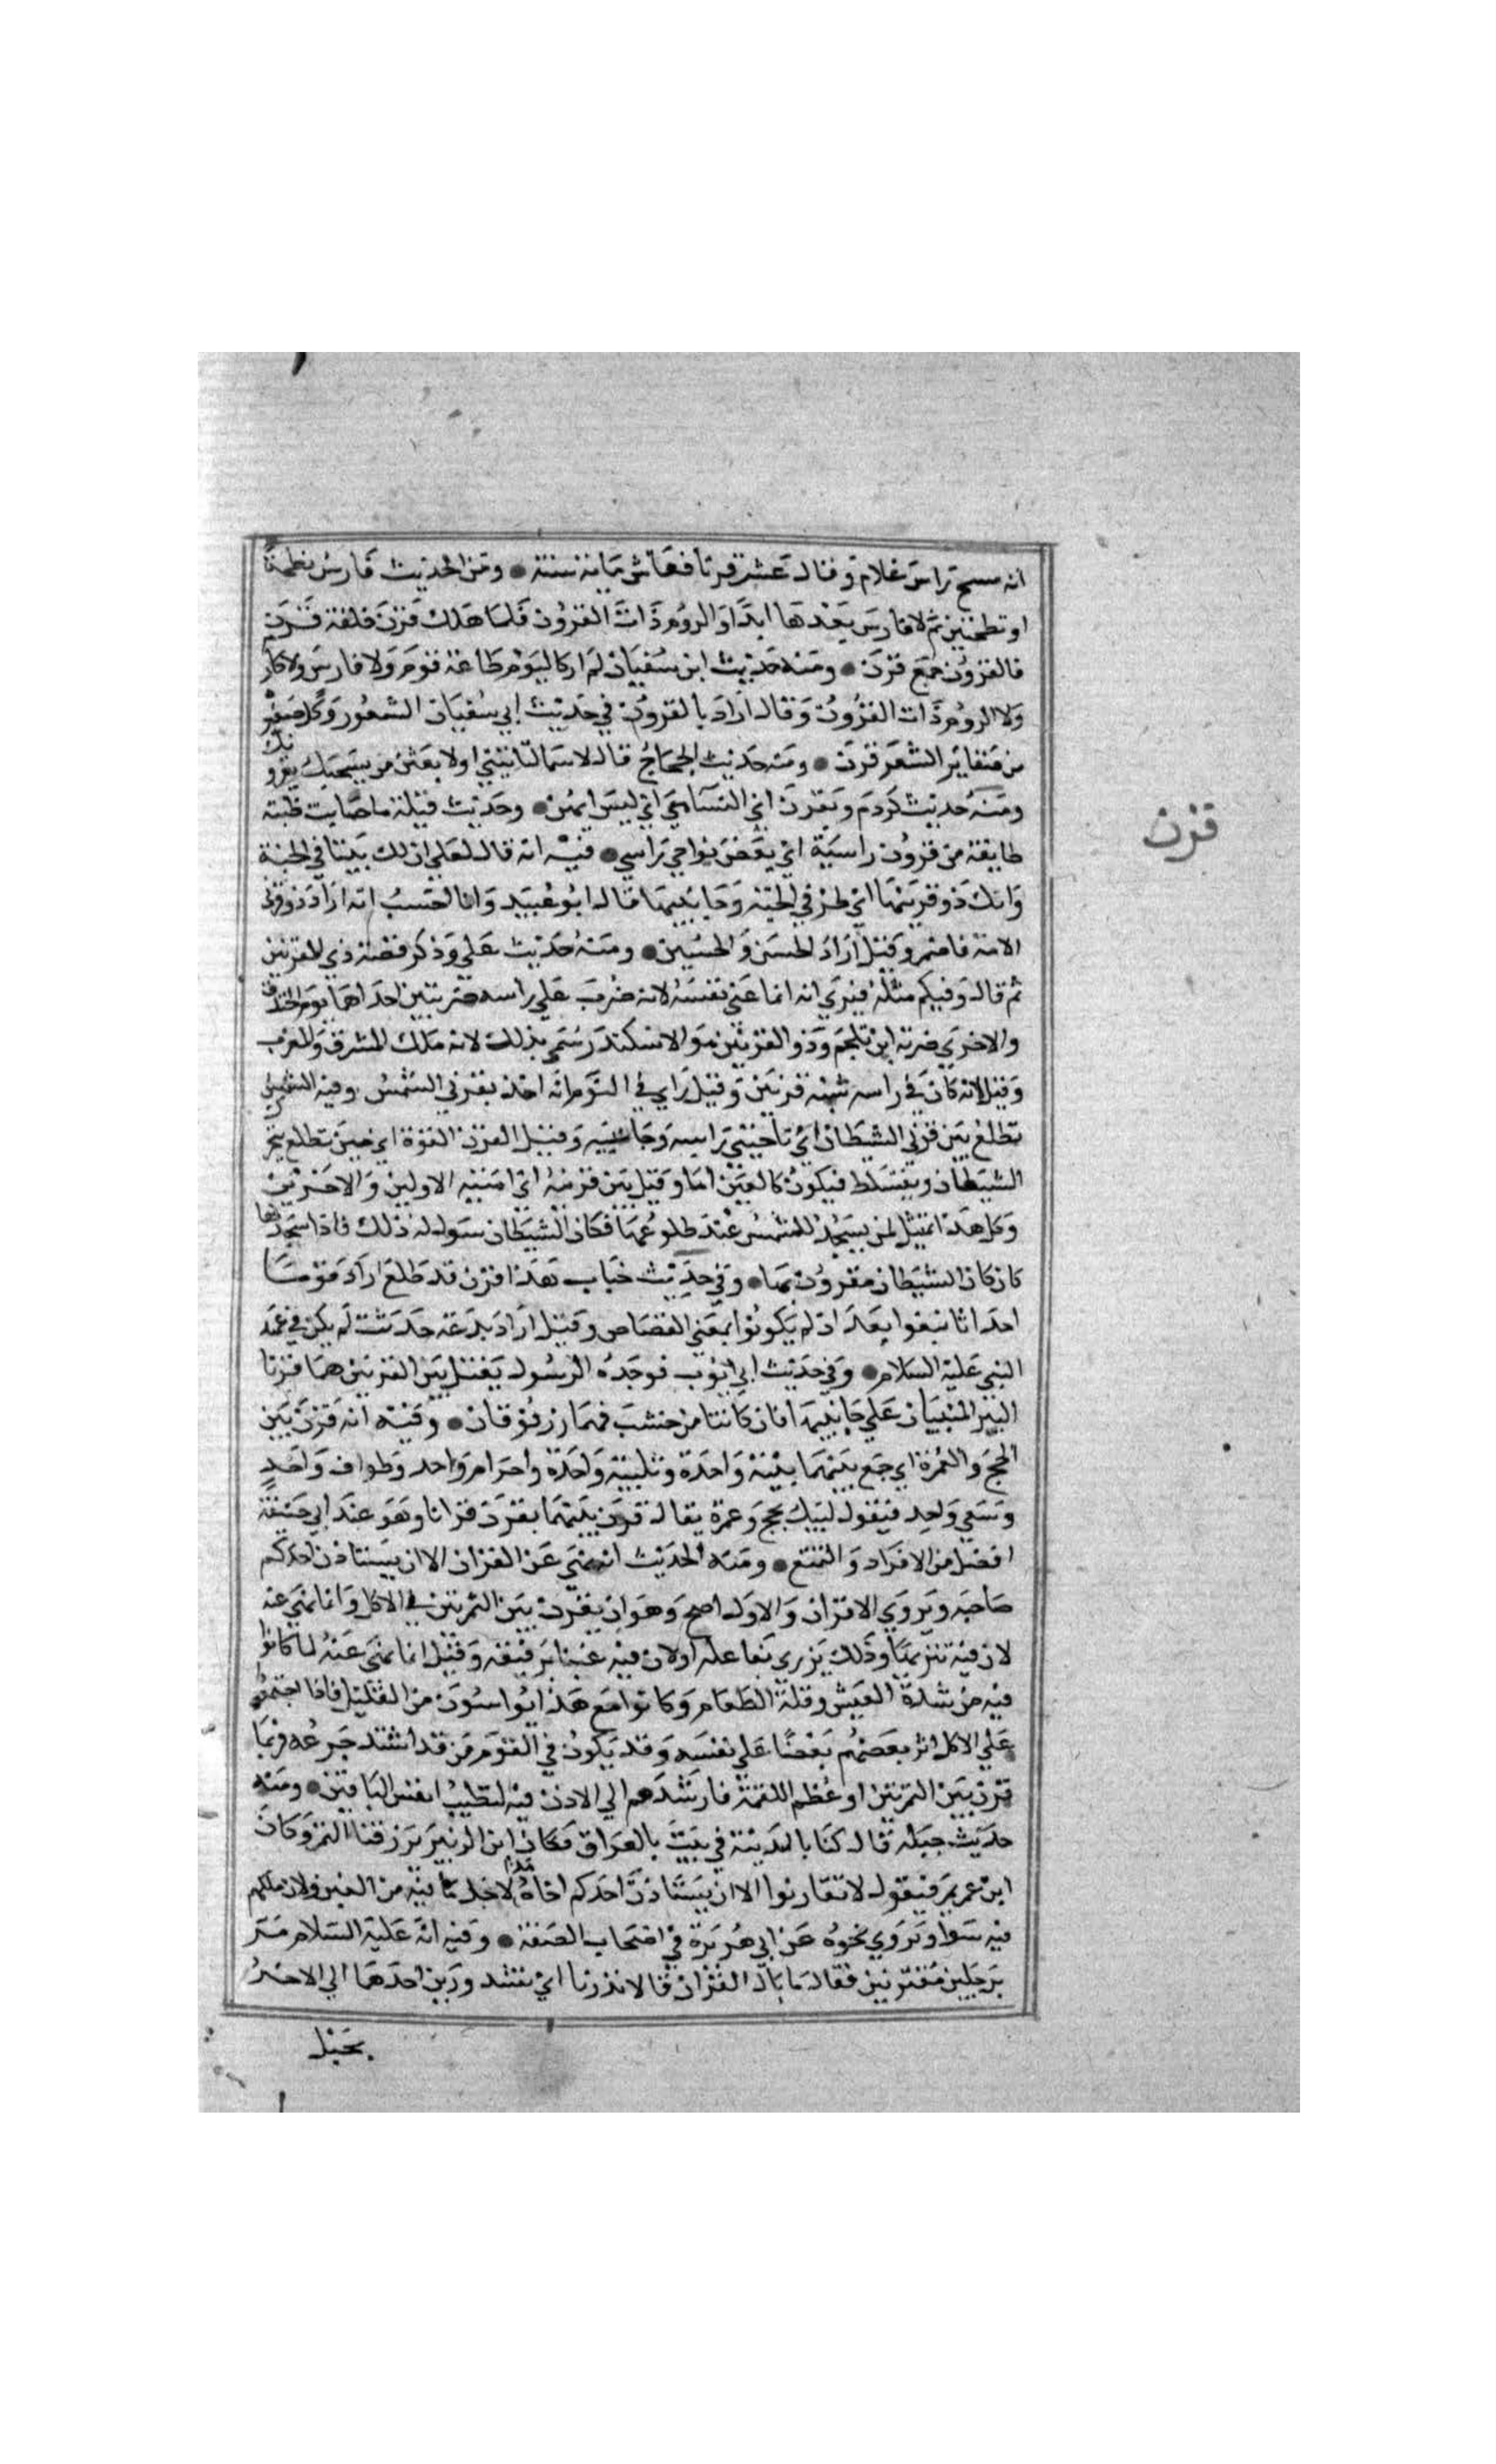 انه مسح براس غلام وقال عش قرنا فعاش مائة سنة ومن الحديث فارس نطحة
او نطحتين ثم لا فارس بعدها ابدا والروم ذات القرون فلما هلك قرن خلفه قرن
فالقرون جمع قرن ومنه حديث ابن سفيان لم ار كاليوم طاعة قوم ولا فارس ولا كار
ولا الروم ذات القرون وقال اراد بالقرون في حديث ابي سفيان الشعور وكل ضفير
من ضفاير الشعر قرن ومنه حديث الحجاج قال لاسما لتاتيني او لابعثن من يسحبك بقرونك
ومنه حديث كردم وبقرن اي النسا هي اي ليس ايهن وحديث قيلة فاصابت ظبته
طايفة من قرون راسية اي بعض نواحي راسي فيه انه قال لعلي ان لك بيتا في الجنة
وانك ذو قرنيها اي طرفي الجنة وجانبيها قال ابو عبيد وانا احسب انه اراد ذو قرني
الامة فاضمر وقيل اراد الحسن والحسين ومنه حديث علي وذكر قصة ذي القرنين
ثم قال وفيكم مثله فيري انه انما عني نفسه لانه ضرب علي راسه ضربتين احداهما يوم الخندق
والاخري ضربة ابن ملجم وذو القرنين هو الاسكندر سمي بذلك لانه ملك المشرق والمغرب
وقيل لانه كان في راسه شبه قرنين وقيل راي في النوم انه اخذ بقرني الشمس وفيه الشمس
تطلع بين قرني الشيطان اي ناحيتي راسه وجانبيه وقيل القرن القوة اي حين تطلع يتحرك
الشيطان ويتسلط فيكون كالمعين لها وقيل بين قرنيه اي امتيه الاولين والاخرين
وكل هذا تمثيل لمن يسجد للشمس عند طلوعها فكان الشيطان سول له ذلك فاذا سجد لها
كان كان الشيطان مقرون بها وفي حديث خباب هذا قرن قد طلع اراد قوما
احداثا نبغوا بعد ان لم يكونوا بمعني القصاص وقيل اراد بدعة حدثت لم يكن في عهد
النبي عليه السلام وفي حديث ابي ايوب فوجده الرسول يغتسل بين القرنين هما قرنا
البير المبنيان علي جانبيها فان كانتا من خشب فهما زرنوقان وفيه انه قرن بين
الحج والعمرة اي جمع بينهما بنية واحدة وتلبية واحدة واحرام واحد وطواف واحد
وسعي واحد فيقول لبيك بحج وعمرة يقال قرن بينهما يقرن قرانا وهو عند ابي حنيفة
افضل من الافراد والتمتع ومنه الحديث انه نهي عن القران الا ان يستاذن احدكم
صاحبه ويروي الاقران والاول اصح وهو ان يقرن بين التمرتين في الاكل وانما نهي عنه
لان فيه شرها وذلك يزري بفاعله اولان فيه غبنا برفيقه وقيل انما نهي عنه لما كانوا
فيه من شدة العيش وقلة الطعام وكانوا مع هذا يواسون من القليل فاذا اجتمعوا
علي الاكل اثر بعضهم بعضا علي نفسه وقد يكون في القوم من قد اشتد جوعه فربما
قرن بين التمرتين او عظم اللقمة فارشدهم الي الاذن فيه لتطيب انفس الباقين ومنه
حديث جبلة قال كنا بالمدينة في بعث بالعراق فكان ابن الزبير يرزقنا التمر وكان
ابن عمر يمر فيقول لا تقارنوا الا ان يستاذن احدكم اخاه هذا لاجل ما فيه من الغبن ولان ملكهم
فيه سوا ويروي نحوه عن ابي هريرة في اصحاب الصفة وفيه انه عليه السلام مر
برجلين مقترنين فقال ما بال القران قالا نذرنا اي مشدودين احدهما الي الاخر
بحبل
قرن